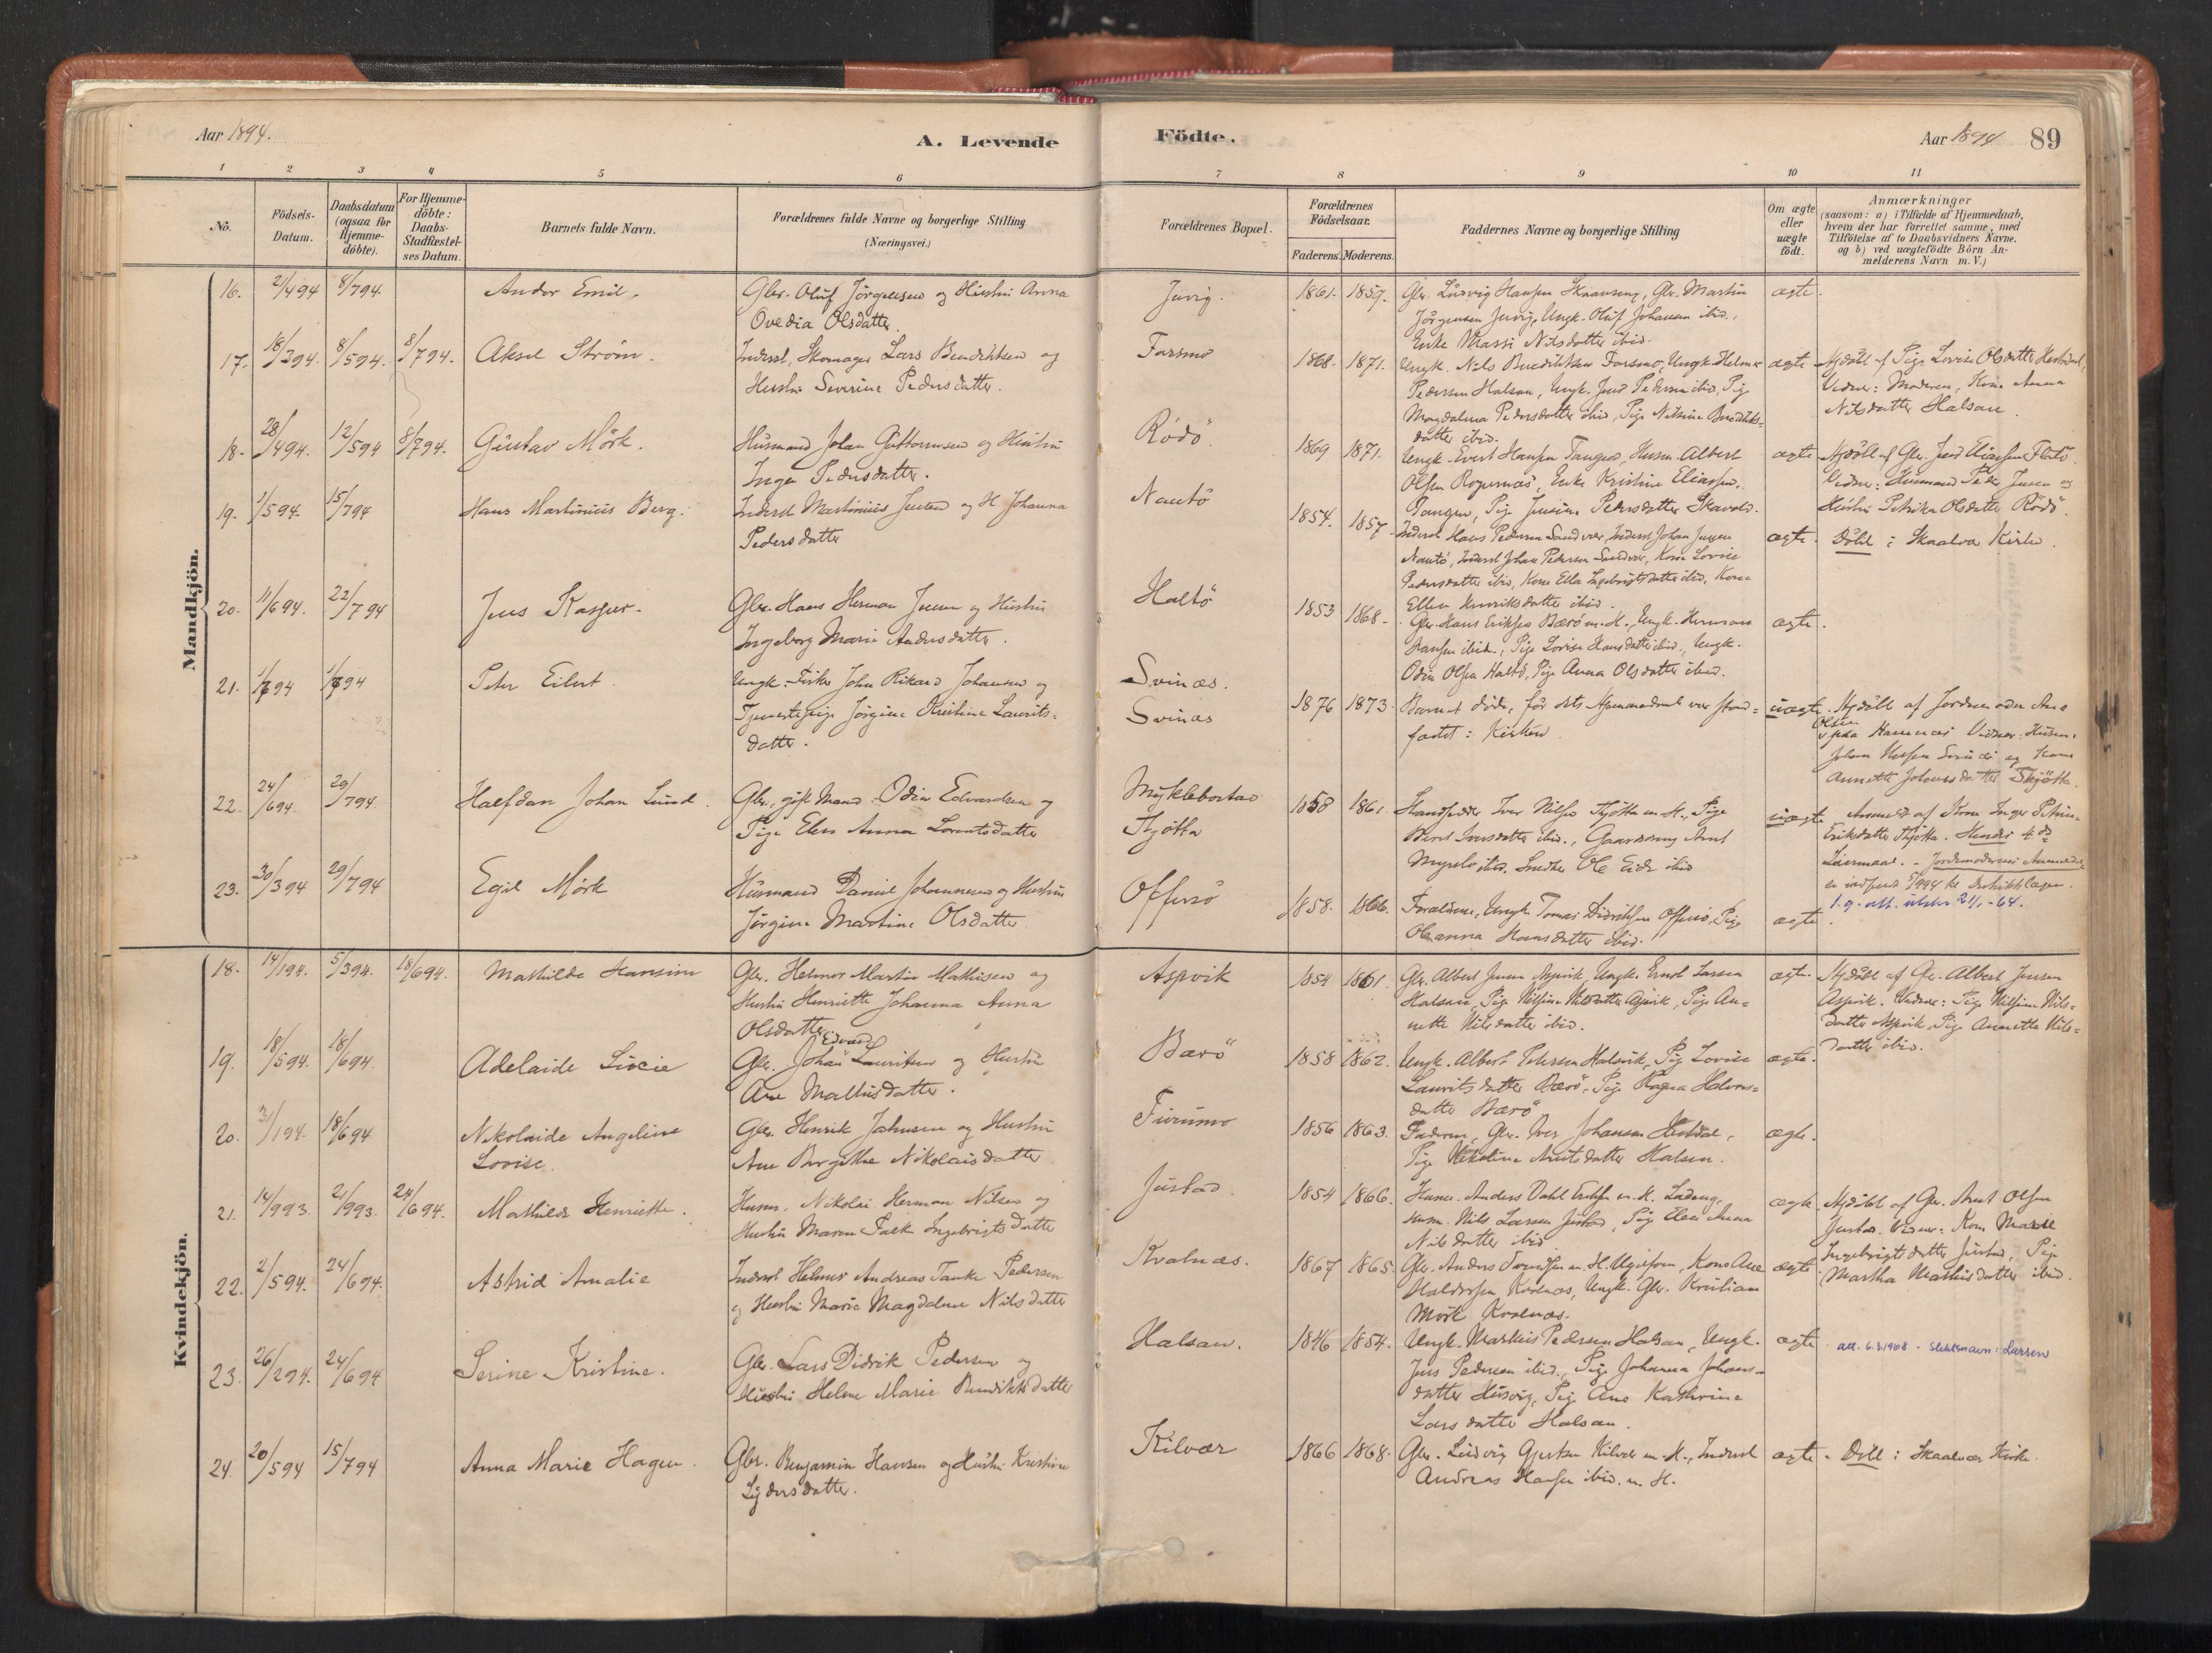 Aar 1894.
A. Levende
Födte.
Aar 1894
89
1 2 3 4 5 6 7 8 9 10 11
No.
Födsels-Datum.
Daabsdatum (ogsaa for Hjemme-döbte).
For Hjemme-döbte: Daabs-Stadfæstel-ses Datum.
Barnets fulde Navn.
Forældrenes fulde Navne og borgerlige Stilling (Næringsvei.)
Forældrenes Bopæl.
Forældrenes Födselsaar.
Faderens. Moderens.
Faddernes Navne og borgerlige Stilling
Om ægte eller uægte födt.
Anmærkninger
(saasom: a) i Tilfælde af Hjemmedaab,
hvem der har forrettet samme, med
Tilföielse af to Daabsvidners Navne.
og b) ved uægtefödte Börn An-
melderens Navn m. V.)
Mandkjön.
16. 2/494 8/794. Andor Emil. Gbr. Oluf Jörgensen og Hustru Anna
Ovedia Olsdatter.
Juvig. 1861. 1859. Gbr. Ludvig Hansen Skaanseng, Gbr. Martin
Jörgensen Juvig, Ungk. Oluf Johansen ibid.,
Enke Massi Nilsdatter ibid.
ægte.
17. 18/394. 8/594. 8/794. Aksel Ström. Inderst, Skomager Lars Bendiktsen og
Hustru Severine Pedersdatter.
Forsmo 1868. 1871. Ungk. Nils Bendiktsen Forsmo, Ungk. Helmer
Pedersen Halsan, Ungk. Jens Pedersen ibid, Pige
Magdalena Pedersdatter ibid, Pige Nilsine Bendikts-
datter ibid.
ægte Hjdöbt af Pige Lovise Olsdatter
Vidner: Moderen, Kone Anna
Nilsdatter Halsan.
18. 28/494. 12/594 8/794. Gustav Mörk. Husmand Johan Guttormsen og Hustru
Inger Pedersdatter.
Rödö. 1869 1871. Ungk. Evert Hansen Tangen, Husm. Albert
Olsen, Enke Kristine Eliassen,
Tangen, Pige Jensine Pedersdatter
ægte Hjdöbt af Gbr. Jens Eliassen Flatö.
Vidner: Husmand Peder Jensen og
Hustru Petrikke Olsdatter Rödö.
19. 1/594. 15/794 Hans Martinius Berg. Inderst Martinius Jensen og H. Johanna
Pedersdatter
Nautö 1854. 1857 Inderst Hans Pedersen Sandvær, Inderst Johan Jensen
Nautö, Inderst Johan Pedersen Sandvær, Kone Lovise
Pedersdatter ibid, Kone Ella Ingebrigtsdatter ibid, Kone
Ellen Henriksdatter ibid.
ægte. Döbt i Skaalvær Kirke.
20. 11/694. 22/794 Jens Kasper. Gbr. Hans Herman Jensen og Hustru
Ingeborg Marie Andersdatter.
Haltö 1853 1868 Gbr. Hans Eriksen Bærö m. H., Ungk. Herman
Hansen ibid., Pige Lovise Hansdatter ibid., Ungk.
Odin Olsen Haltö, Pige Anna Olsdatter ibid.
ægte.
21. 1/794 1/794 Peter Eilert. Ungk. Fisker John Rikard Johansen og
Tjenestepige Jörgine Kristine Laurits-
datter.
Svinæs.
Svinæs
1876 1873. Barnet döde, för dets Hjemmedaab var stad-
fæstet i Kirken
uægte. Hjdöbt af Jordmoder Ane
Olsen
paa Hamnæs Vidner: Husm.
Johan og Kone
Annette Johansdatter Thjötta.
22. 24/694. 29/794. Halfdan Johan Lund. Gbr., gift Mand Odin Edvardsen og
Pige Elen Anna Lorentsdatter
Myklebostad
Thjötta
1858 1861. Iver Nilsen Thjötta m. H., Pige
Beret Iversdatter ibid., Gaardsdreng Arnt
ibid. Snedker Ole Eide ibid
uægte Anmeldt af Kone Inger
Eriksdatter Thjötta. Hendes 4de
Leiermaal. - Jordmoderens Anmeldel-
se indsendt 5/994 til Distriktslægen.
1.g. att. utstn 2 11/1 -64.
23. 30/394 29/794 Egil Mörk Husmand Daniel Johannesen og Hustru
Jörgine Martine Olsdatter
Offersö 1858. 1866. Forældrene, Ungk. Tomas Didriksen Offersö, Pige
Oleanna Hansdatter ibid.
ægte.
Kvindekjön.
18. 14/194. 5/394. 18/694. Mathilde Hansine Gbr. Helmer Martin Mathisen og
Hustru Henriette Johanna Anna
Olsdatter
Aspvik 1854 1861. Gbr. Albert Jensen Aspvik Ungk. Ernst Larsen
Halsan, Pige Nilsine Nilsdatter Aspvik, Pige An-
nette Nilsdatter ibid.
ægte. Hjdöbt af Gbr. Albert Jensen
Aspvik. Vidner: Pige Nilsine Nils-
datter Aspvik, Pige Annette Nils-
datter ibid.
19. 18/594. 18/694. Adelaide Lucie Gbr. Johan Edvard Lauritsen og Hustru
Ane Mathisdatter.
Bærö 1858 1862. Ungk. Albert Petersen Halsvik, Pige Lovise
Lauritsdatter Bærö, Pige Ragna Helmers-
datter Bærö
ægte.
20. 31/194. 18/694 Nikolaide Angeline
Lovise.
Gbr. Henrik Johnsen og Hustru
Ane Birgitthe Nikolaisdatter
Furumo 1856 1863. Faderen, Gbr. Iver Johansen Hestdal,
Pige Nikoline Arntsdatter Halsen.
ægte.
21. 14/993. 21/993. 24/694. Mathilde Henriette. Husm. Nikolai Herman Nilsen og
Hustru Maren Falk Ingebrigtsdatter
Justad. 1854 1866. Husm. Anders Dahl m. H. Ladeng,
Husm. Nils Larsen Justad, Pige Elen Anna
Nilsdatter ibid
ægte Hjdöbt af Gbr. Arnt Olsen
Justad. Vidner: Kone Marie
Ingebrigtsdatter Justad, Pige
Martha Mathisdatter ibid.
22. 2/594. 24/694. Astrid Amalie Inderst Helmer Andreas Tanke Pedersen
og Hustru Marie Magdalene Nilsdatter
Kvalnæs. 1867 1865 Gbr. Anders m. H., Kone Ane
Haldorsen Kvalnæs, Ungk. Gbr. Kristian
Mörk Kvalnæs.
ægte
23. 26/294. 24/694 Serine Kristine. Gbr. Lars Didrik Pedersen og
Hustru Helene Marie Bendiktsdatter
Halsan. 1846 1854. Ungk. Markus Pedersen Halsan, Ungk.
Jens Pedersen ibid., Pige Johanna Johans-
datter Husvig, Pige Ane Kathrine
Larsdatter Halsan.
ægte att. 6.3.1968 - Slektsnavn: Larsen
24. 20/594 15/794 Anna Marie Hagen. Gbr. Benjamin Hansen og Hustru Kristine
Lydersdatter.
Kilvær 1866 1868. Gbr. Ludvig Gjertsen Kilvær m. H., Inderst
Andreas Hansen ibid. m. H.
ægte. Döbt i Skaalvær Kirke.